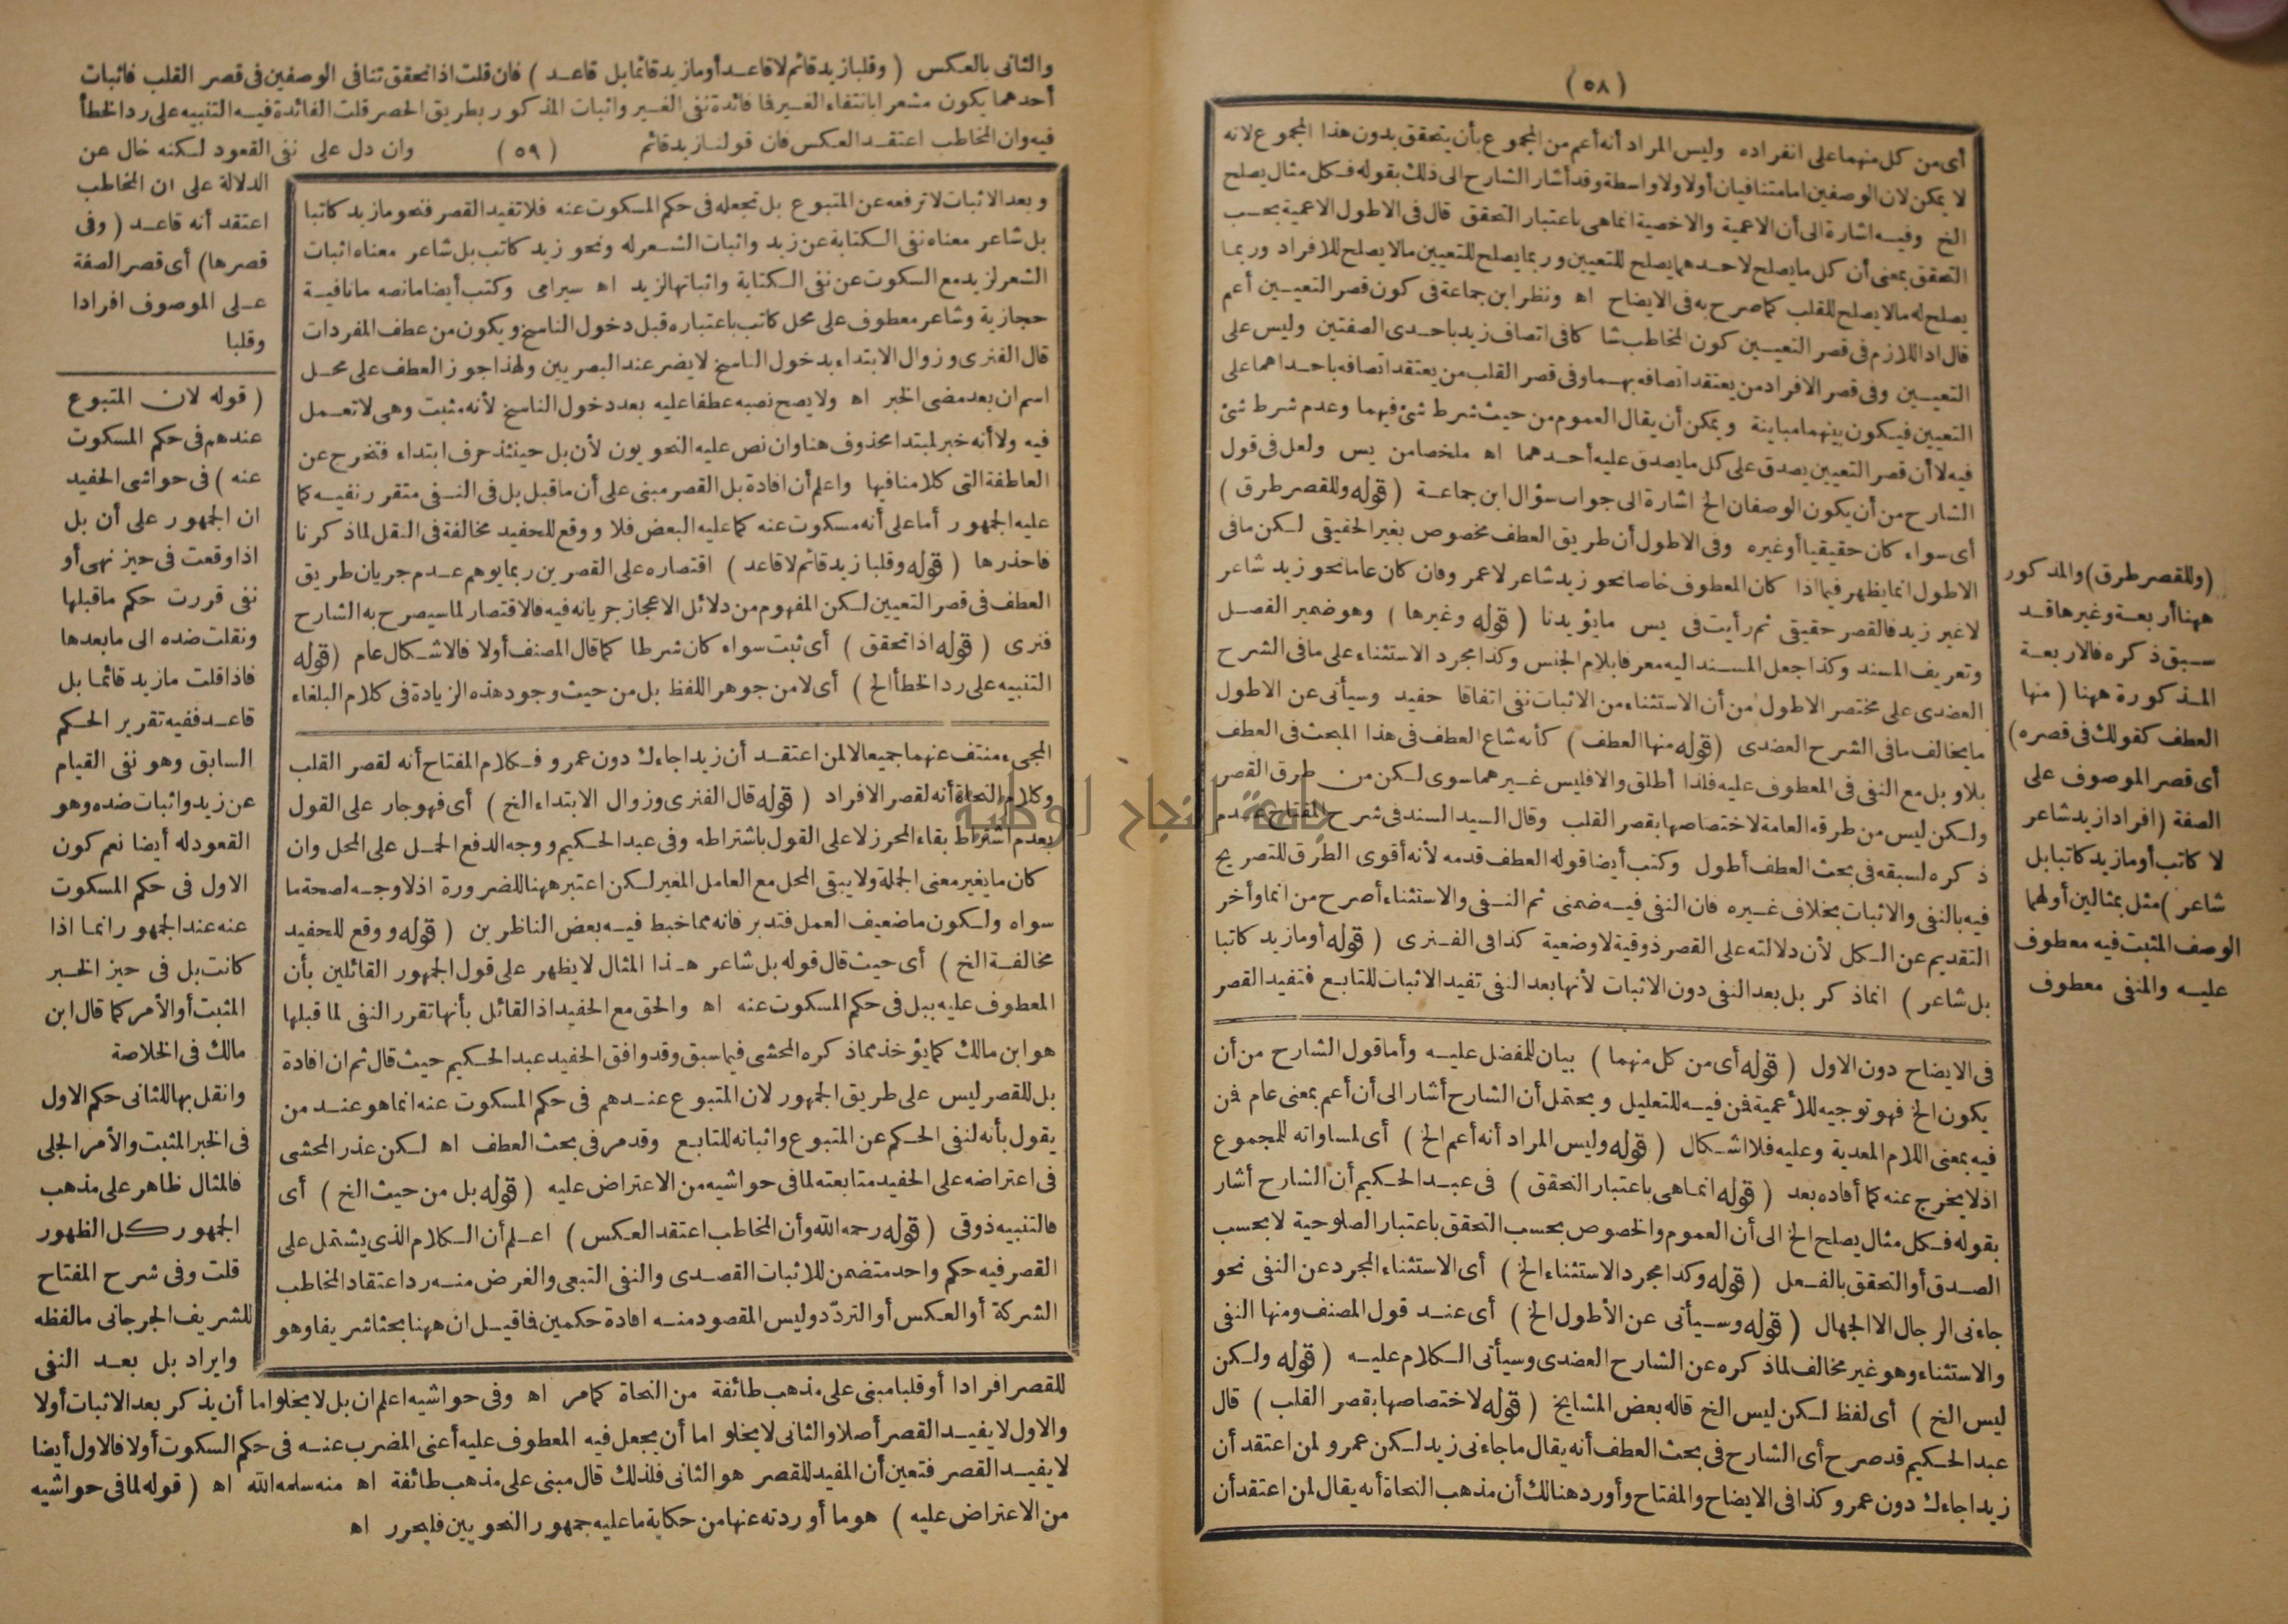 (٥٨)
أى من كل منهما على انفراده وليس المراد أنه أعم من المجموع بأن يتحقق بدون هذا المجموع لانه
لا يمكن لان الوصفين اما متنافيان أولا ولا واسطة وقد أشار الشارح الى ذلك بقوله فكل مثال يصلح
الخ وفيه اشارة الى أن الاعمية والاخصية انما هى باعتبار التحقق قال فى الاطول الاعمية بحسب
التحقق بمعنى أن كل ما يصلح لاحدهما يصلح للتعيين وربما يصلح للتعيين مالا يصلح للافراد وربما
يصلح له مالا يصلح للقلب كما صرح به فى الايضاح اه ونظر ابن جماعة فى كون قصر التعيين أعم
قال اذ اللازم فى قصر التعيين كون المخاطب شا كا فى اتصاف زيد باحدى الصفتين وليس على
التعيين وفى قصر الافراد من يعتقد اتصافه بهما وفى قصر القلب من يعتقد اتصافه باحداهما على
التعيين فيكون بينهما مباينة ويمكن أن يقال العموم من حيث شرط شئ فيهما وعدم شرط شئ
فيه لا أن قصر التعيين يصدق على كل ما يصدق عليه أحدهما اه ملخصا من يس ولعل فى قول
الشارح من أن يكون الوصفان الخ اشارة الى جواب سؤال ابن جماعة (قوله وللقصر طرق)
أى سواء كان حقيقيا أو غيره وفى الاطول أن طريق العطف مخصوص بغير الحقيقى لكن ما فى
الاطول انما يظهر فيما اذا كان المعطوف خاصا نحو زيد شاعر لا عمر وفان كان عاما نحو زيد شاعر
لا غير زيد فالقصر حقيقى ثم رأيت فى يس ما يؤيدنا (قوله وغيرها) وهو ضمير الفصل
وتعريف المسند وكذا جعل المسند اليه معرفا بلام الجنس وكذا مجرد الاستثناء على ما فى الشرح
العضدى على مختصر الاطول من أن الاستثناء من الاثبات نفى اتفاقا حفيد وسيأتى عن الاطول
ما يخالف ما فى الشرح العضدى (قوله منها العطف) كأنه شاع العطف فى هذا المبحث فى العطف
بلا و بل مع النفى فى المعطوف عليه فلذا أطلق والا فليس غيرهما سوى لكن من طرق القصر
ولكن ليس من طرقه العامة لاختصاصها بقصر القلب وقال السيد السند فى شرح المفتاح عدم
ذكره لسبقه فى بحث العطف أطول وكتب أيضا قوله العطف قدمه لأنه أقوى الطرق للتصريح
فيه بالنفى والاثبات بخلاف غيره فان النفى فيه ضمنى ثم النفى والاستثناء أصرح من انما وأخر
التقديم عن الكل لأن دلالته على القصر ذوقية لا وضعية كذا فى الفنرى (قوله أو ما زيد كاتبا
بل شاعر) انما ذكر بل بعد النفى دون الاثبات لأنها بعد النفى تفيد الاثبات للتابع فتفيد القصر
فى الايضاح دون الاول (قوله أى من كل منهما) بيان للمفضل عليه وأما قول الشارح من أن
يكون الخ فهو توجيه للأعمية فمن فيه للتعليل ويحتمل أن الشارح أشار الى أن أعم بمعنى عام فمن
فيه بمعنى اللام المعدية وعليه فلا اشكال (قوله وليس المراد أنه أعم الخ) أى لمساواته للمجموع
اذ لا يخرج عنه كما أفاده بعد (قوله انما هى باعتبار التحقق) فى عبد الحكيم أن الشارح أشار
بقوله فكل مثال يصلح الخ الى أن العموم والخصوص بحسب التحقق باعتبار الصلوحية لا بحسب
الصدق أو التحقق بالفعل (قوله وكذا مجرد الاستثناء الخ) أى الاستثناء المجرد عن النفى نحو
جاءنى الرجال الا الجهال (قوله وسيأتى عن الأطول الخ) أى عند قول المصنف ومنها النفى
والاستثناء وهو غير مخالف لما ذكره عن الشارح العضدى وسيأتى الكلام عليه (قوله ولكن
ليس الخ) أى لفظ لكن ليس الخ قاله بعض المشايخ (قوله لاختصاصها بقصر القلب) قال
عبد الحكيم قد صرح أى الشارح فى بحث العطف أنه يقال ما جاءنى زيد لكن عمرو لمن اعتقد أن
زيدا جاءك دون عمرو كذا فى الايضاح والمفتاح وأورد هنالك أن مذهب النحاة أنه يقال لمن اعتقد أن
(وللقصر طرق) والمذكور
ههنا أربعة وغيرها قد
سبق ذكره فالاربعة
المذكورة ههنا (منها
العطف كقولك فى قصره)
أى قصر الموصوف على
الصفة (افرادا زيد شاعر
لا كاتب أو ما زيد كاتبا بل
شاعر) مثل بمثالين أولهما
الوصف المثبت فيه معطوف
عليه والمنفى معطوف
والثانى بالعكس (وقلبا زيد قائم لا قاعد أو ما زيد قائما بل قاعد) فان قلت اذا تحقق تنافى الوصفين فى قصر القلب فاثبات
أحدهما يكون مشعرا بانتفاء الغير فما فائدة نفى الغير واثبات المذكور بطريق الحصر قلت الفائدة فيه التنبيه على رد الخطأ
فيه وان المخاطب اعتقد العكس فان قولنا زيد قائم (٥٩) وان دل على نفى القعود لكنه خال عن
الدلالة على ان المخاطب
اعتقد أنه قاعد (وفى
قصرها) أى قصر الصفة
على الموصوف افرادا
وقلبا
وبعد الاثبات لا ترفعه عن المتبوع بل تجعله فى حكم المسكوت عنه فلا تفيد القصر فنحو ما زيد كاتبا
بل شاعر معناه نفى الكتابة عن زيد واثبات الشعر له ونحو زيد كاتب بل شاعر معناه اثبات
الشعر لزيد مع السكوت عن نفى الكتابة واثباتها لزيد اه سيرامى وكتب أيضا ما نصه ما نافية
حجازية وشاعر معطوف على محل كاتب باعتباره قبل دخول الناسخ ويكون من عطف المفردات
قال الفنرى وزوال الابتداء بدخول الناسخ لا يضر عند البصريين ولهذا جوز العطف على محل
اسم ان بعد مضى الخبر اه ولا يصح نصبه عطفا عليه بعد دخول الناسخ لأنه مثبت وهى لا تعمل
فيه ولا أنه خبر لمبتدا محذوف هنا وان نص عليه النحويون لأن بل حينئذ حرف ابتداء فتخرج عن
العاطفة التى كلامنا فيها واعلم أن افادة بل القصر مبنى على أن ما قبل بل فى النفى متقرر نفيه كما
عليه الجمهور أما على أنه مسكوت عنه كما عليه البعض فلا ووقع للحفيد مخالفة فى النقل لما ذكرنا
فاحذرها (قوله وقلبا زيد قائم لا قاعد) اقتصاره على القصرين ربما يوهم عدم جريان طريق
العطف فى قصر التعيين لكن المفهوم من دلائل الاعجاز جريانه فيه فالاقتصار لما سيصرح به الشارح
فنرى (قوله اذا تحقق) أى ثبت سواء كان شرطا كما قال المصنف أولا فالاشكال عام (قوله
التنبيه على رد الخطأ الخ) أى لا من جوهر اللفظ بل من حيث وجود هذه الزيادة فى كلام البلغاء
المجىء منتف عنهما جميعا لا لمن اعتقد أن زيدا جاءك دون عمرو فكلام المفتاح أنه لقصر القلب
وكلام النحاة أنه لقصر الافراد (قوله قال الفنرى وزوال الابتداء الخ) أى فهو جار على القول
بعدم اشتراط بقاء المحرز لا على القول باشتراطه وفى عبد الحكيم ووجه الدفع الحمل على المحل وان
كان ما يغير معنى الجملة ولا يبقى المحل مع العامل المغير لكن اعتبر ههنا للضرورة اذ لا وجه لصحة ما
سواه ولكون ما ضعيف العمل فتدبر فانه مما خبط فيه بعض الناظرين (قوله ووقع للحفيد
مخالفة الخ) أى حيث قال قوله بل شاعر هذا المثال لا يظهر على قول الجمهور القائلين بأن
المعطوف عليه ببل فى حكم المسكوت عنه اه والحق مع الحفيد اذ القائل بأنها تقرر النفى لما قبلها
هو ابن مالك كما يؤخذ مما ذكره المحشى فيما سبق وقد وافق الحفيد عبد الحكيم حيث قال ثم ان افادة
بل للقصر ليس على طريق الجمهور لان المتبوع عندهم فى حكم المسكوت عنه انما هو عند من
يقول بأنه لنفى الحكم عن المتبوع واثباته للتابع وقد مر فى بحث العطف اه لكن عذر المحشى
فى اعتراضه على الحفيد متابعته لما فى حواشيه من الاعتراض عليه (قوله بل من حيث الخ) أى
فالتنبيه ذوقى (قوله رحمه الله وأن المخاطب اعتقد العكس) اعلم أن الكلام الذى يشتمل على
القصر فيه حكم واحد متضمن للاثبات القصدى والنفى التبعى والغرض منه رد اعتقاد المخاطب
الشركة أو العكس أو التردّد وليس المقصود منه افادة حكمين فما قيل ان ههنا بحثا شريفا وهو
(قوله لان المتبوع
عندهم فى حكم المسكوت
عنه) فى حواشى الحفيد
ان الجمهور على أن بل
اذا وقعت فى حيز نهى أو
نفى قررت حكم ما قبلها
ونقلت ضده الى ما بعدها
فاذا قلت ما زيد قائما بل
قاعد ففيه تقرير الحكم
السابق وهو نفى القيام
عن زيد واثبات ضده وهو
القعود له أيضا نعم كون
الاول فى حكم المسكوت
عنه عند الجمهور انما اذا
كانت بل فى حيز الخبر
المثبت أو الأمر كما قال ابن
مالك فى الخلاصة
وانقل بها للثانى حكم الاول
فى الخبر المثبت والأمر الجلى
فالمثال ظاهر على مذهب
الجمهور كل الظهور
قلت وفى شرح المفتاح
للشريف الجرجانى ما لفظه
وايراد بل بعد النفى
للقصر افرادا أو قلبا مبنى على مذهب طائفة من النحاة كما مر اه وفى حواشيه اعلم ان بل لا يخلو اما أن يذكر بعد الاثبات أولا
والاول لا يفيد القصر أصلا والثانى لا يخلو اما أن يجعل فيه المعطوف عليه أعنى المضرب عنه فى حكم السكوت أولا فالاول أيضا
لا يفيد القصر فتعين أن المفيد للقصر هو الثانى فلذلك قال مبنى على مذهب طائفة اه منه سلمه الله اه (قوله لما فى حواشيه
من الاعتراض عليه) هو ما أوردته عنها من حكاية ما عليه جمهور النحويين فليحرر اه
جامعة النجاح الوطنية